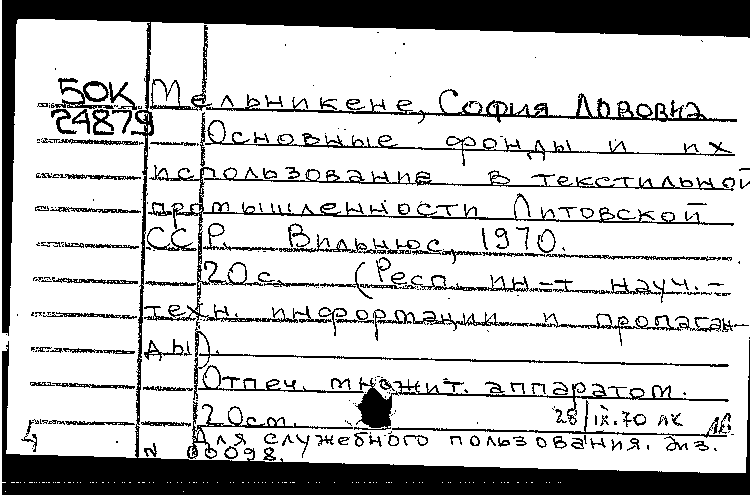 50К Мельникене, София Львовна
24879 Основные фонды и их
использование в текстильной
промышленности Литовской
ССР. Вильнюс, 1970.
20 с. (Респ. ин-т науч.-
техн. информации и пропаган-
ды).
Отпеч. множит. аппаратом.
20 см. 28/IX.70 ЛК
Для служебного пользования. Экз.
N 00098.